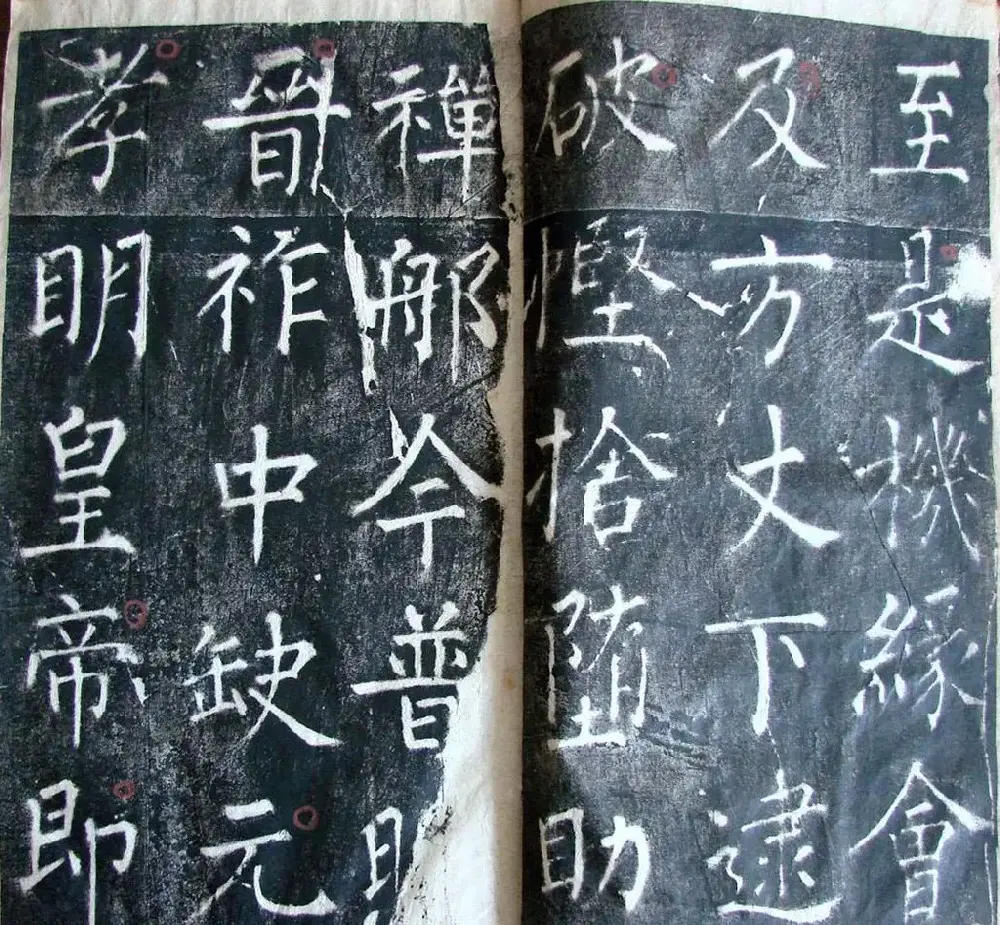 至是機緣會
及方丈下逮
破慳捨堕助
禪那今普
晉祚中缺元
孝明皇帝即